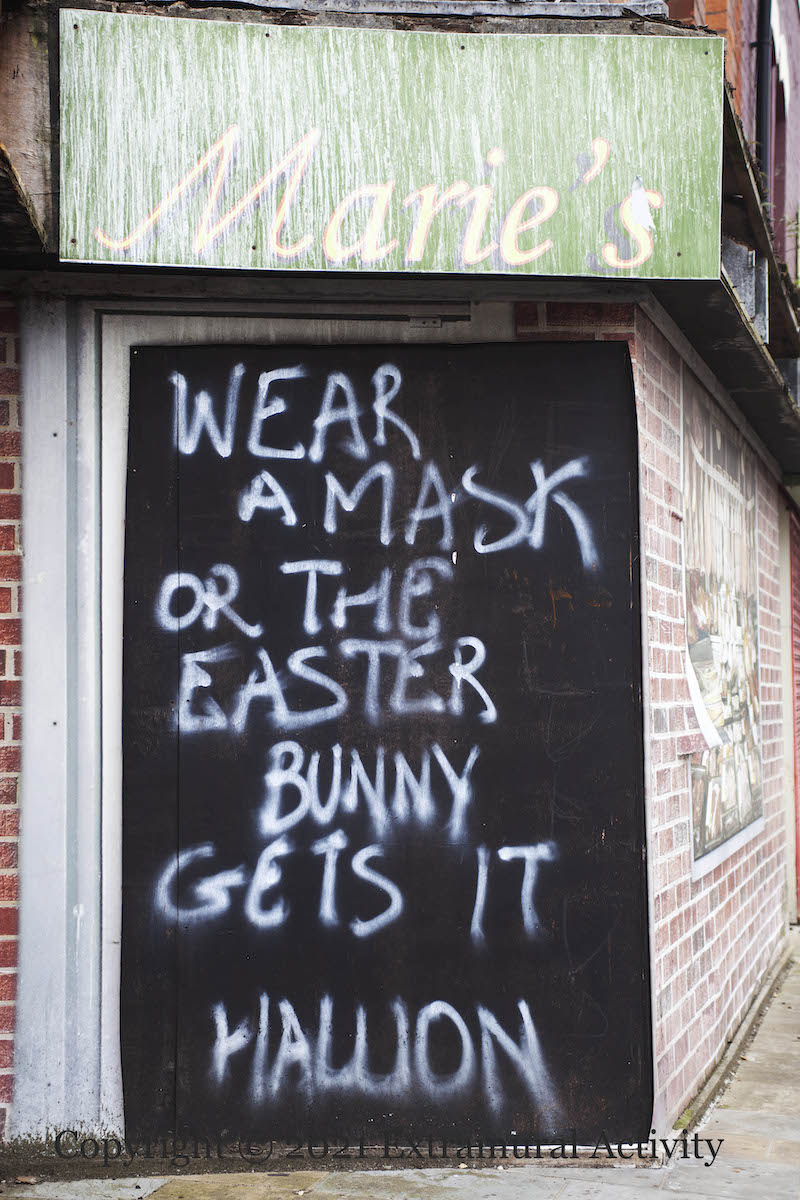 Marie's
WEAR
A MASK
OR THE
EASTER
BUNNY
GETS IT
HALLION
Copyright © 2021 Extramural Activity